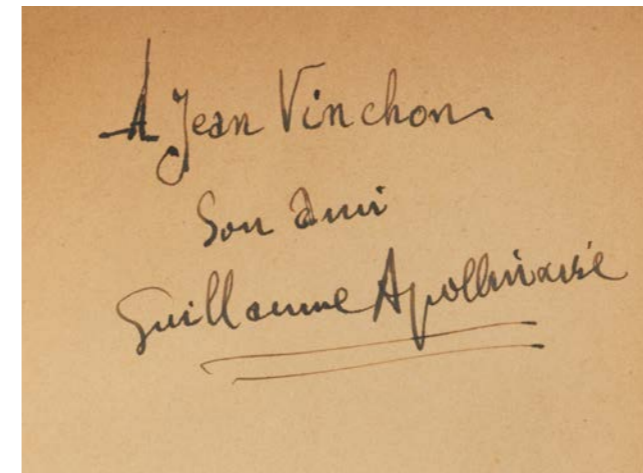 A Jean Vinchon
Son ami
Guillaume Apollinaire